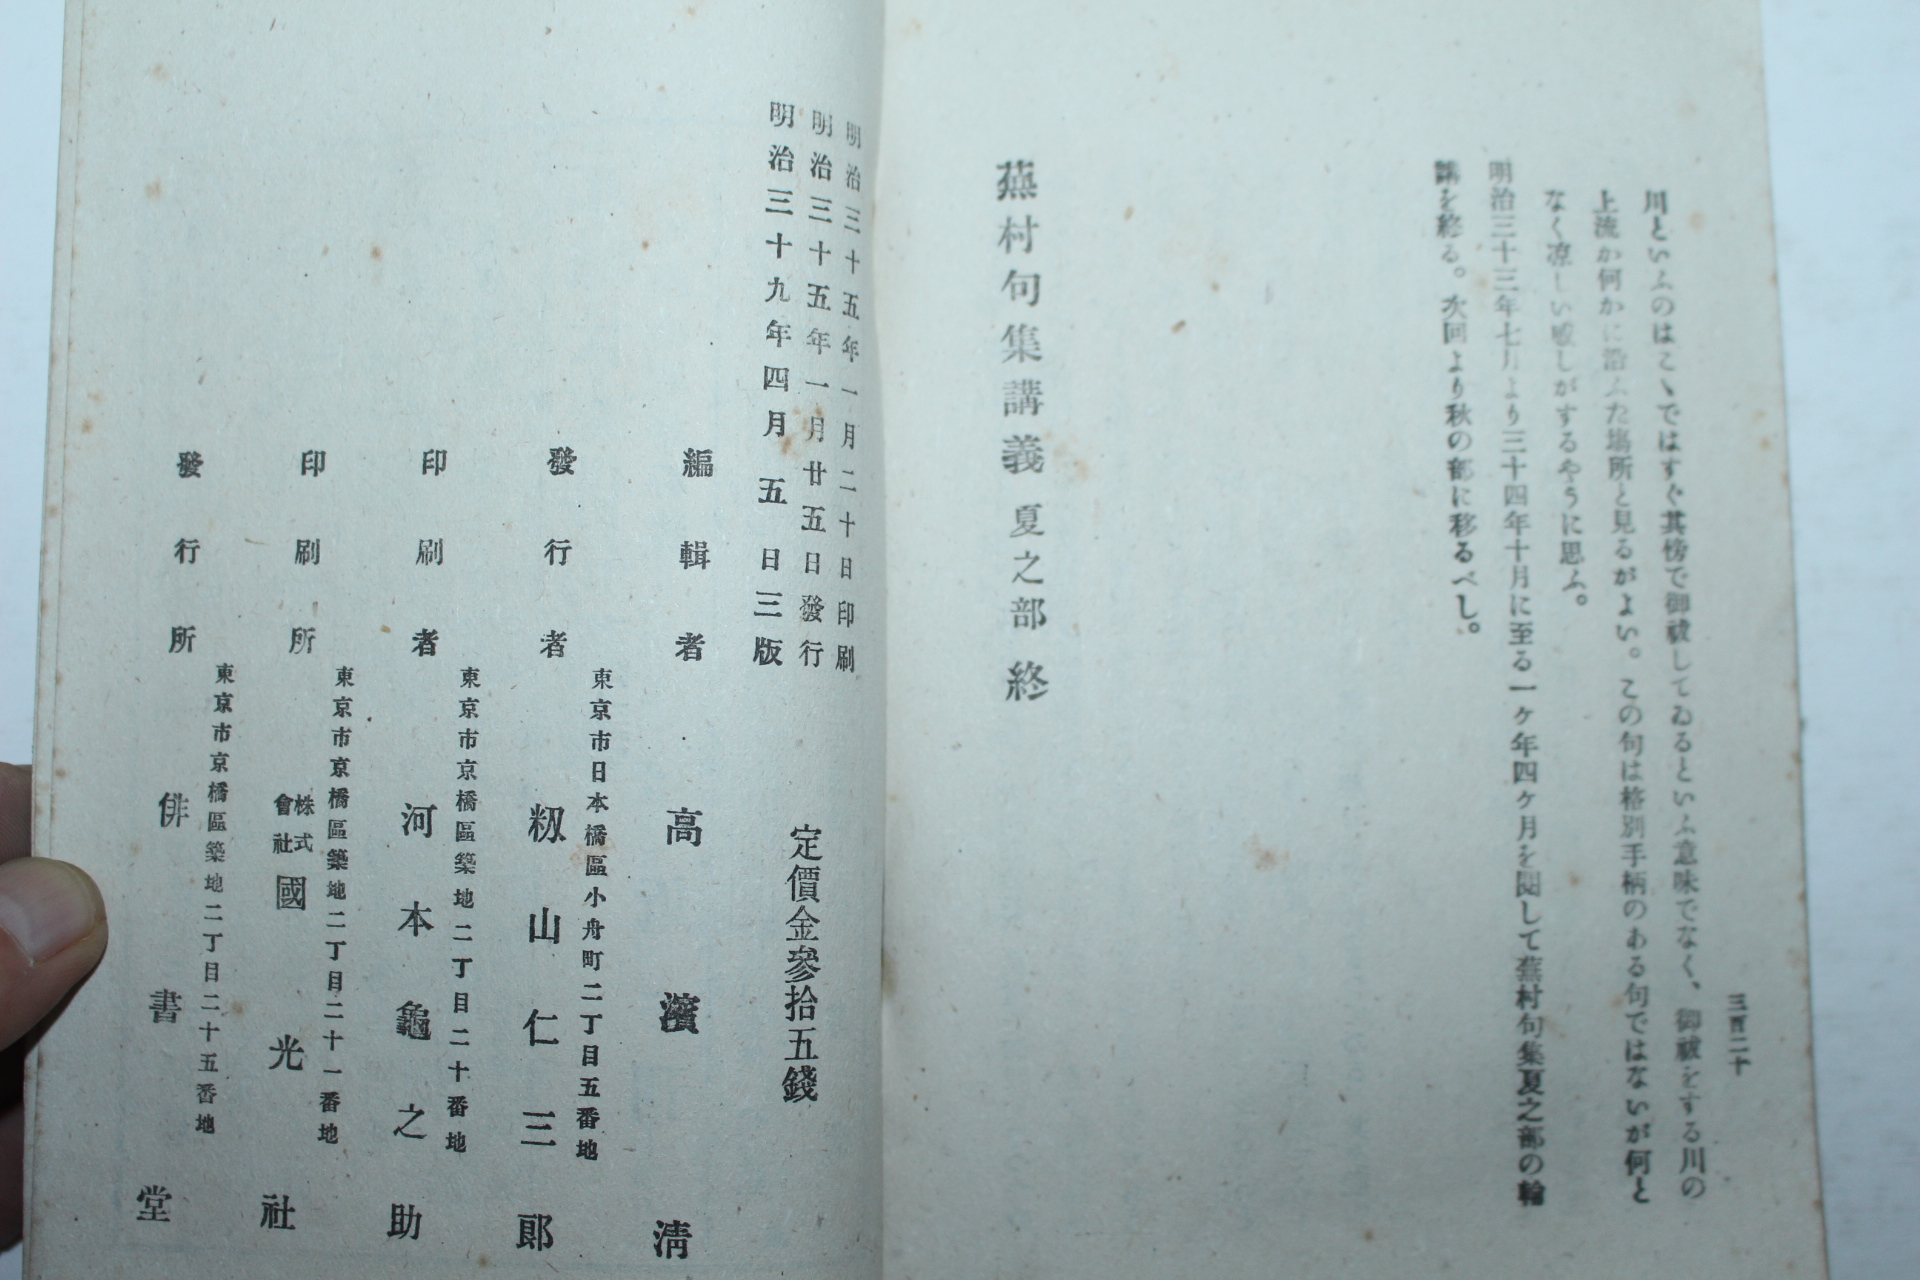 三百二十
川といふのはこゝではすぐ其傍で御祓してゐるといふ意味でなく、御祓をする川の
上流か何かに沿ふた塲所と見るがよい。この句は格別手柄のある句ではないが何と
なく凉しい感しがするやうに思ふ。
明治三十三年七月より三十四年十月に至る一ヶ年四ヶ月を閲して蕪村句集夏之部の輪
講を終る。次回より秋の部に移るべし。
蕪村句集講義 夏之部 終
明治三十五年一月二十日印刷
明治三十五年一月廿五日發行
明治三十九年四月五日三版
定價金參拾五錢
編輯者 高濱清
東京市日本橋區小舟町二丁目五番地
發行者 籾山仁三郎
東京市京橋區築地二丁目二十番地
印刷者 河本龜之助
東京市京橋區築地二丁目二十一番地
印刷所 株式會社 國光社
東京市京橋區築地二丁目二十五番地
發行所 俳書堂